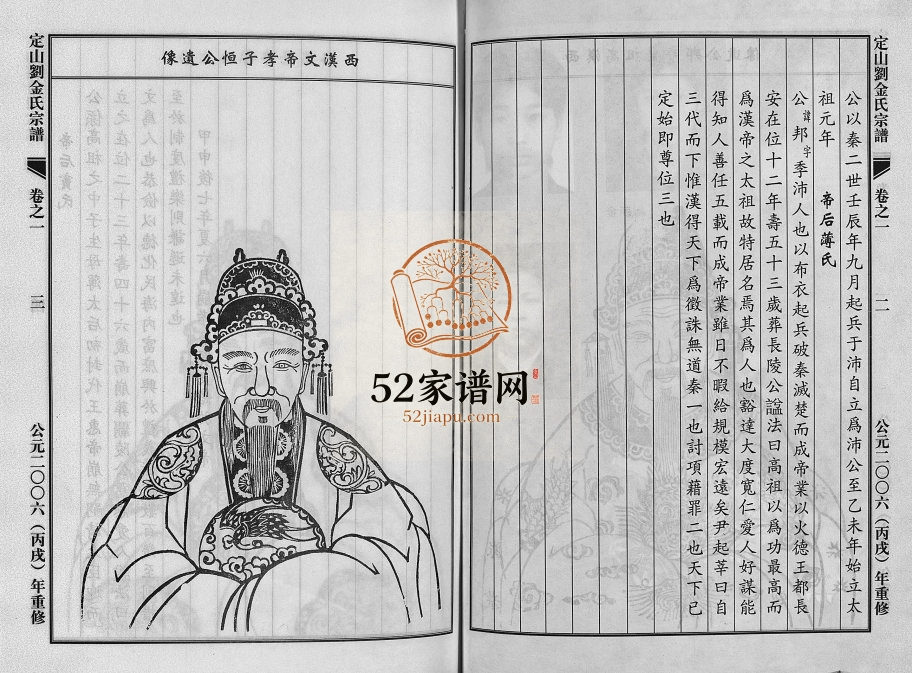 定山劉金氏宗譜
卷之一
二
公元二〇〇六（丙戌）年重修
公以秦二世壬辰年九月起兵于沛自立爲沛公至乙未年始立太
祖元年
帝后薄氏
公諱邦字季沛人也以布衣起兵破秦滅楚而成帝業以火德王都長
安在位十二年壽五十三歲葬長陵公諡法曰高祖以爲功最高而
爲漢帝之太祖故特居名焉其爲人也豁達大度寬仁愛人好謀能
得知人善任五載而成帝業雖日不暇給規模宏遠矣尹起莘曰自
三代而下惟漢得天下爲徵誅無道秦一也討項藉罪二也天下已
定始即尊位三也
西漢文帝孝子恒公遺像
定山劉金氏宗譜
卷之一
三
公元二〇〇六（丙戌）年重修
52家谱网
52jiapu.com